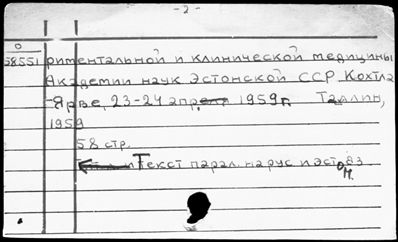 - 2 -
0
58551 риментальной и клинической медицины
Академии наук Эстонской ССР. Кохтла
-Ярве, 23-24 апреля 1959 г. Таллин,
1959
58 стр.
Текст парал. на рус и эстон. яз.